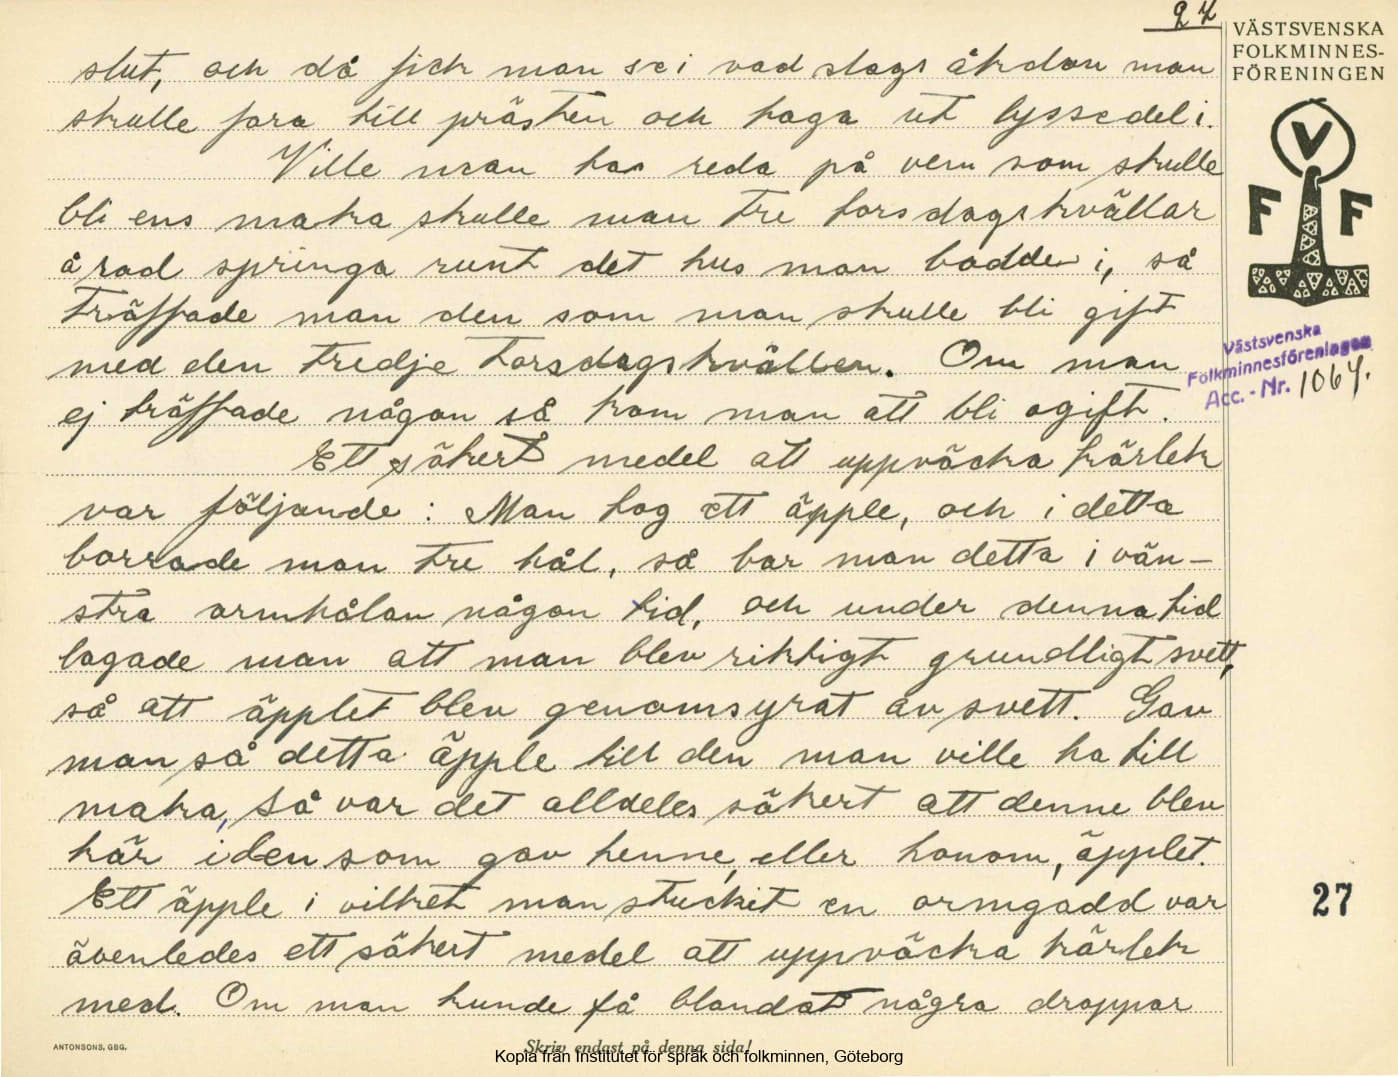 27
VÄSTSVENSKA
FOLKMINNES-
FÖRENINGEN
slut, och då fick man se i vad slags åkdon man
skulle fara till prästen och taga ut lyssedel i.
Ville man ha reda på vem som skulle
bli ens maka skulle man tre torsdagskvällar
å rad springa runt det hus man bodde i, så
träffade man den som man skulle bli gift
med den tredje torsdagskvällen. Om man
ej träffade någon så kom man att bli ogift.
Ett säkert medel att uppväcka kärlek
var följande: Man tog ett äpple, och i detta
borrade man tre hål, så bar man detta i vän-
stra armhålan någon tid, och under denna tid
lagade man att man blev riktigt grundligt svett,
så att äpplet blev genomsyrat av svett. Gav
man så detta äpple till den man ville ha till
maka, så var det alldeles säkert att denne blev
kär i den som gav henne, eller honom, äpplet.
Ett äpple i vilket man stuckit en ormgadd var
ävenledes ett säkert medel att uppväcka kärlek
med. Om man kunde få blandat några droppar
V
F F
Västsvenska
Folkminnesföreningen
Acc.-Nr. 1064.
27
ANTONSONS, GBG.
Skriv endast på denna sida!
Kopia från Institutet för språk och folkminnen, Göteborg